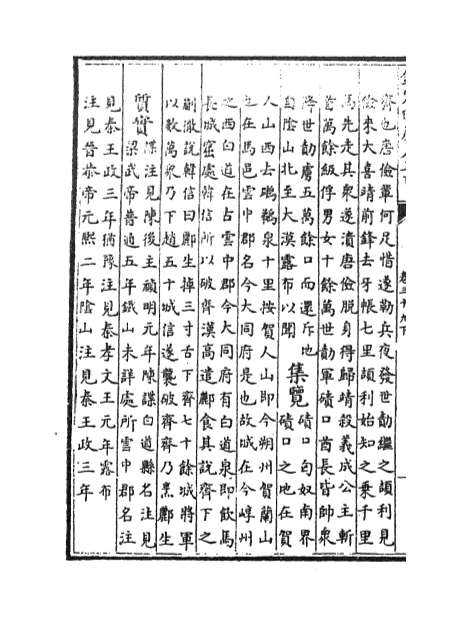 齊也唐儉輩何足惜遂勒兵夜發世勣繼之頡利見
儉來大喜靖前鋒去牙帳七里頡利始知之乗千里
馬先走其衆遂潰唐儉脱身得歸靖殺義成公主斬
首萬餘級俘男女十餘萬世勣軍磧口酋長皆帥衆
降世勣虜五萬餘口而還斥地
自隂山北至大漠露布以聞
集覽
磧口匈奴南界
磧口之地在賀
人山西去鵬鵜泉十里按賀人山即今朔州賀蘭山
也在馬邑雲中郡名今大同府是也故城在今崞州
之西白道在占雲中郡今大同府有白道泉即飲馬
長城窟處韓信所以破齊漢高遣酈食其説齊下之
蒯徹説韓信曰酈生掉三寸舌下齊七十餘城將軍
以數萬衆乃下趙五十城信遂襲破齊齊乃烹酈生
質實
諜注見陳後主禎明元年陳諜白道縣名注見
梁武帝普通五年鐵山未詳處所雲中郡名注
見秦王政三年猶豫注見秦孝文王元年露布
注見晉恭帝元熙二年隂山注見秦王政三年